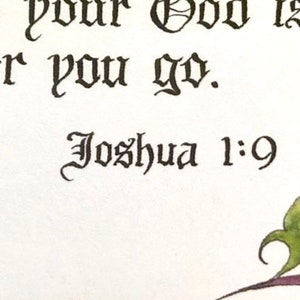 your God is
r you go.
Joshua 1:9